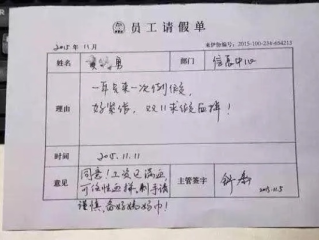 员工请假单
2015年11月
来伊份编号:2015-100-234-654213
姓名 男 部门 信息中心
理由
一年只来一次例假,
好紧张,双11求放血拼!
时间 2015.11.11
意见
同意!工资已满血,
可任性血拼,剁手请
谨慎,备好姨妈巾!
主管签字
2015.11.5